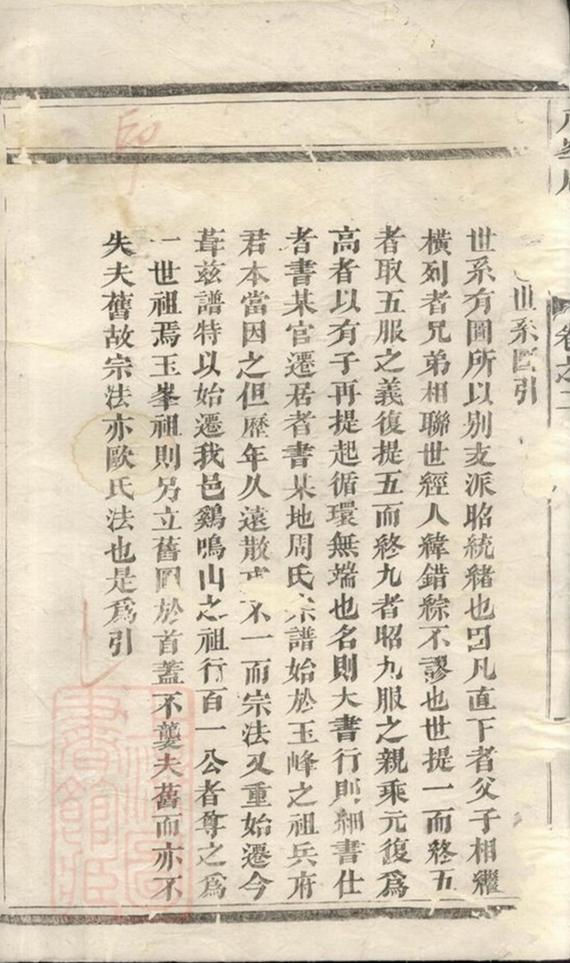 卷之二
世系圖引
世系有圖所以別支派昭統緒也因凡直下者父子相繼
橫列者兄弟相聯世經人緯錯綜不謬也世提一而終五
者取五服之義復提五而終九者昭九服之親乘元復爲
高者以有子再提起循環無端也名則大書行則細書仕
者書某官遷居者書某地周氏宗譜始於玉峰之祖兵府
君本當因之但歷年久遠散 不一而宗法又重始遷今
葺茲譜特以始遷我邑鷄鳴山之祖行百一公者尊之爲
一世祖焉玉峯祖則另立舊圖於首蓋不襲夫舊而亦不
失夫舊故宗法亦歐氏法也是爲引
印